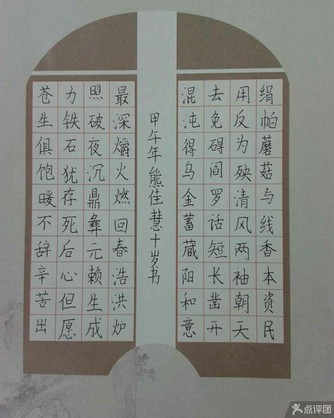 绢帕蘑菇与线香本资民
用反为殃清风两袖朝天
去免碍间罗话短长凿开
混沌得乌金蓄藏阳和意
甲午年熊佳慧十岁书
最深爝火燃回春浩洪炉
照破夜沉鼎彝元赖生成
力铁石犹存死后心但愿
苍生俱饱暖不辞辛苦出
点评团